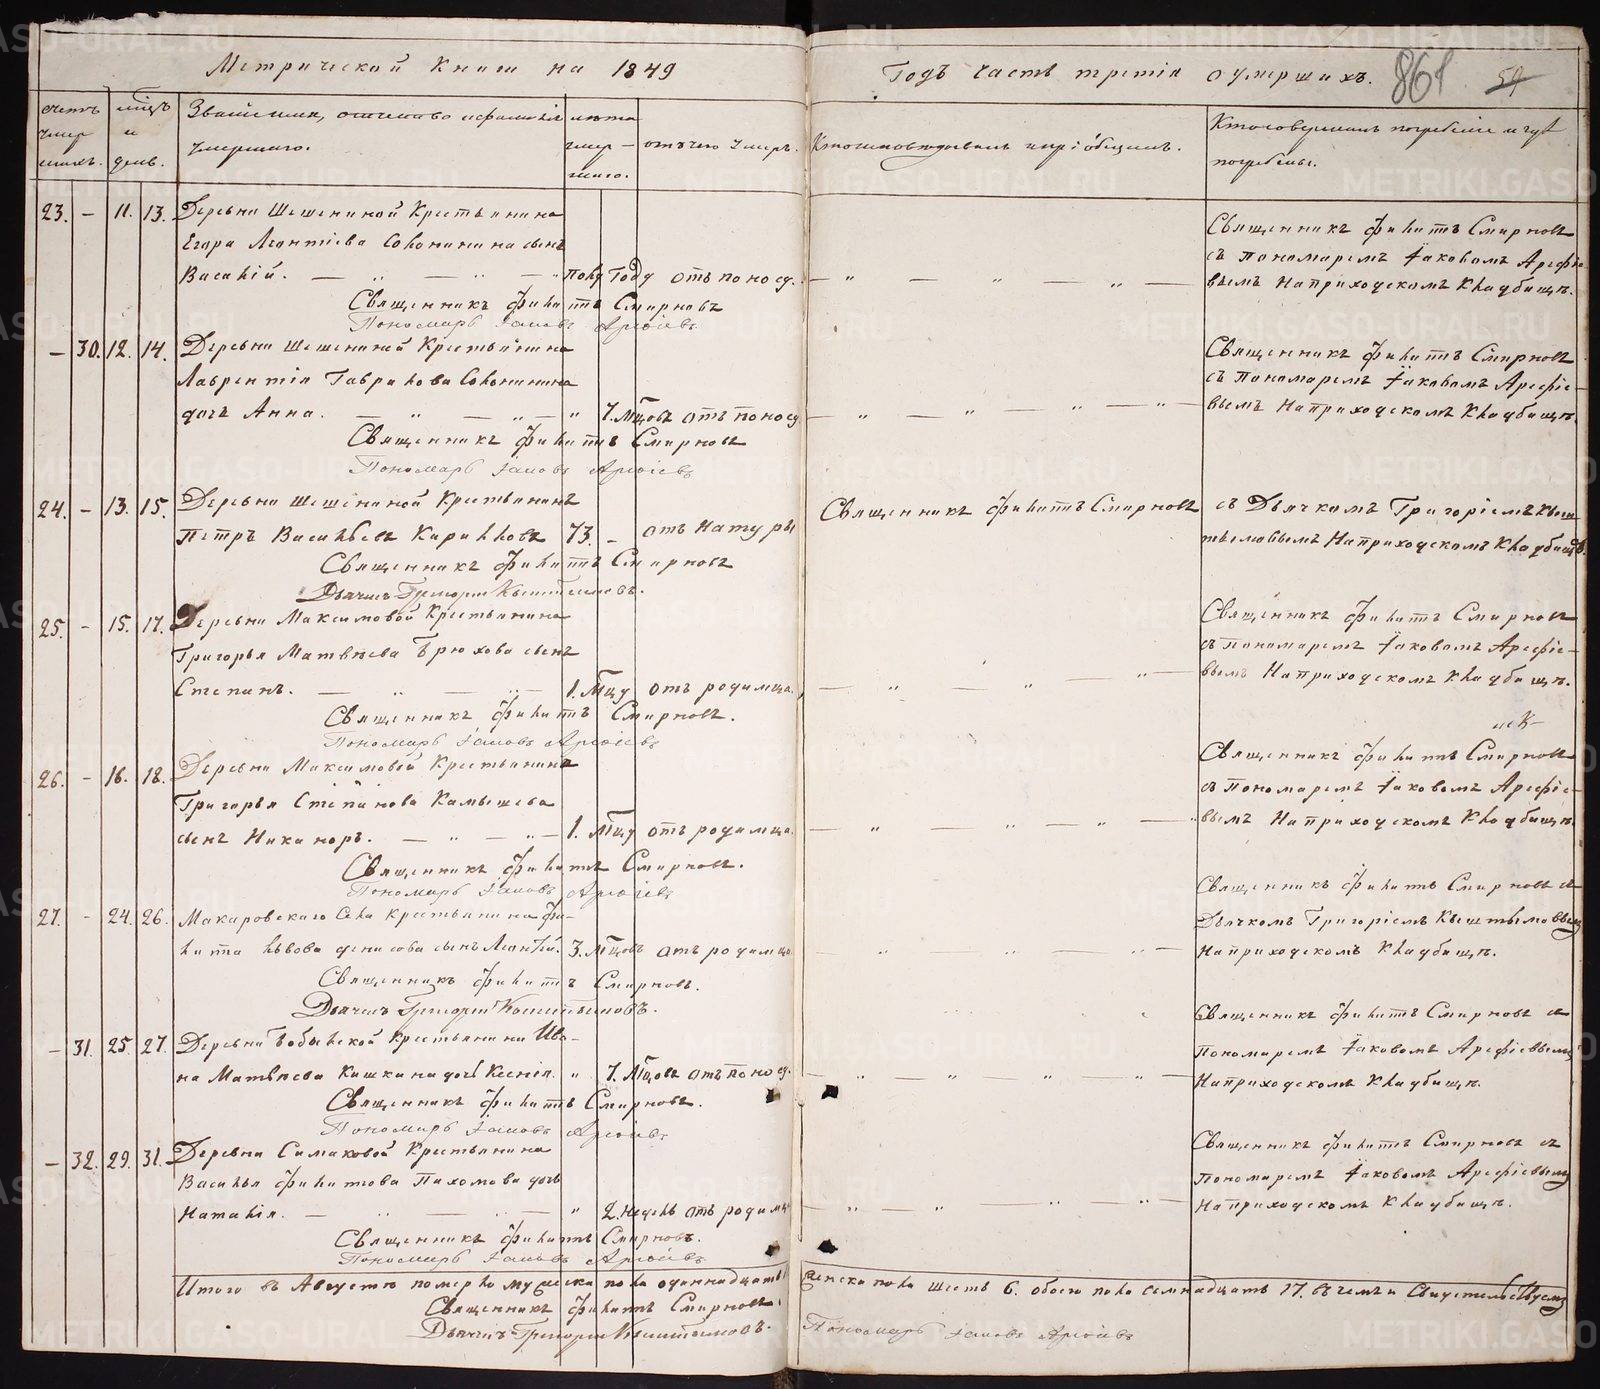 Метрической Книги на 1849
Годъ часть третія о умершихъ.
861 59
счетъ умер шихъ.
мцъ и день.
Званіе имя, отчество и фамилія умершаго.
лѣта умер-шаго.
отъ чего умеръ.
Кто исповѣдывалъ и пріобщалъ.
Кто совершалъ погребеніе и гдѣ погребены.
23. - 11. 13. Деревни Шешениной Крестьянина
Егора Леонтіева Солонинина сынъ
Василій. полу году отъ поносу.
Священникъ Филиппъ Смирновъ
Пономарь Іаковъ Арефіевъ
Священникъ Филиппъ Смирновъ
съ Пономаремъ Іаковомъ Арефіе-
вымъ На приходскомъ Кладбищѣ.
- 30. 12. 14. Деревни Шешениной Крестьянина
Лаврентія Гаврилова Солонинина
дочь Анна. 7. Мцовъ отъ поносу
Священникъ Филиппъ Смирновъ
Пономарь Іаковъ Арефіевъ
Священникъ Филиппъ Смирновъ
съ Пономаремъ Іаковомъ Арефіе-
вымъ На приходскомъ Кладбищѣ.
24. - 13. 15. Деревни Шешениной Крестьянинъ
Петръ Васильевъ 73. - отъ Натуры
Священникъ Филиппъ Смирновъ
Дьячекъ Григорій Кыштымовъ.
Священникъ Филиппъ Смирновъ
съ Дьячкомъ Григоріемъ Кыш-
тымовымъ На приходскомъ Кладбищѣ.
25. - 15. 17. Деревни Максимовой Крестьянина
Григорья Матвѣева Брюхова сынъ
Степанъ. 1. Мцу отъ родимца.
Священникъ Филиппъ Смирновъ.
Пономарь Іаковъ Арефіевъ
Священникъ Филиппъ Смирновъ
съ Пономаремъ Іаковомъ Арефіе-
вымъ На приходскомъ Кладбищѣ.
26. - 16. 18. Деревни Максимовой Крестьянина
Григорья Степанова Камышева
сынъ Никаноръ. 1. Мцу отъ родимца.
Священникъ Филиппъ Смирновъ.
Пономарь Іаковъ Арефіевъ
Священникъ Филиппъ Смирновъ
съ Пономаремъ Іаковомъ Арефіе-
вымъ На приходскомъ Кладбищѣ.
27. - 24. 26. Макаровскаго Села Крестьянина Фи-
липпа Львова Денисова сынъ Леонтій. 3. Мцовъ отъ родимца.
Священникъ Филиппъ Смирновъ.
Дьячекъ Григорій Кыштымовъ.
Священникъ Филиппъ Смирновъ съ
Дьячкомъ Григоріемъ Кыштымовымъ
На приходскомъ Кладбищѣ.
- 31. 25. 27. Деревни Бобылской Крестьянина Ива-
на Матвѣева Кашкина дочь Ксенія. 7. Мцовъ отъ поносу.
Священникъ Филиппъ Смирновъ.
Пономарь Іаковъ Арефіевъ
Священникъ Филиппъ Смирновъ съ
Пономаремъ Іаковомъ Арефіевымъ
На приходскомъ Кладбищѣ.
- 32. 29. 31. Деревни Симаковой Крестьянина
Василья Филиппова Пахомова дочь
Наталія. 2. недѣль отъ родимца
Священникъ Филиппъ Смирновъ.
Пономарь Іаковъ Арефіевъ
Священникъ Филиппъ Смирновъ съ
Пономаремъ Іаковомъ Арефіевымъ
На приходскомъ Кладбищѣ.
Итого въ Августѣ померло мужеска пола одиннадцать женска пола шесть 6. обоего пола семнадцать 17. въ чемъ и Свидетельствуемъ
Священникъ Филиппъ Смирновъ.
Дьячекъ Григорій Кыштымовъ.
Пономарь Іаковъ Арефіевъ
METRIKI.GASO-URAL.RU